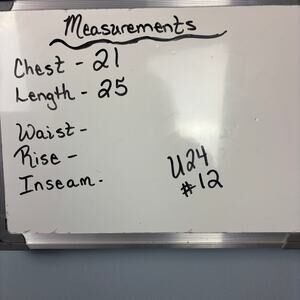 Measurements
Chest - 21
Length - 25
Waist -
Rise -
Inseam -
U24
#12